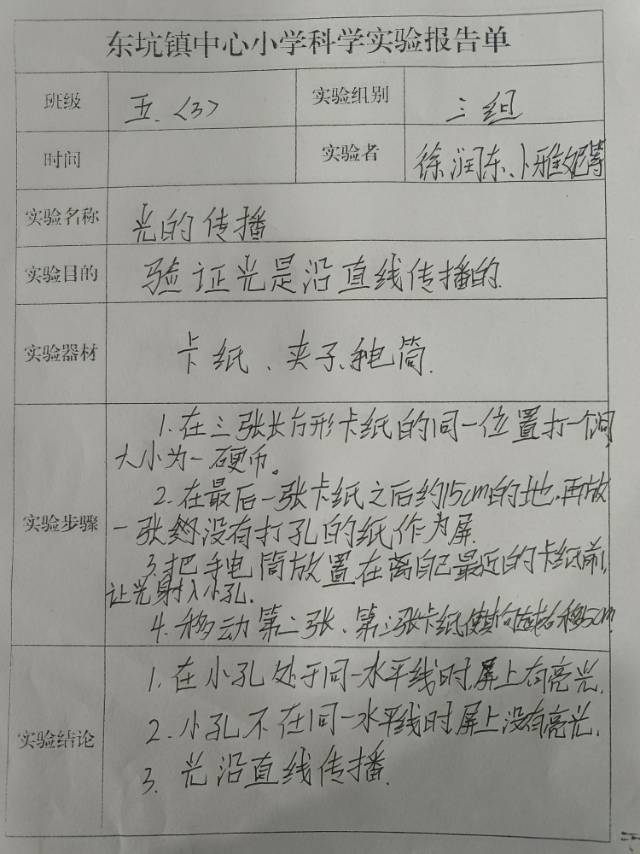 东坑镇中心小学科学实验报告单
班级 五.〈3〉 实验组别 三组
时间 实验者 徐润东、卜雅妮等
实验名称 光的传播
实验目的 验证光是沿直线传播的.
实验器材 卡纸、夹子、手电筒.
实验步骤
1.在三张长方形卡纸的同一位置打一个洞
大小为一硬币。
2.在最后一张卡纸之后约15cm的地,再放
一张没有打孔的纸作为屏.
3.把手电筒放置在离自己最近的卡纸前,
让光射入小孔.
4.移动第二张、第三张卡纸使其向左或右移5cm
实验结论
1.在小孔处于同一水平线时,屏上有亮光.
2.小孔不在同一水平线时屏上没有亮光.
3.光沿直线传播.